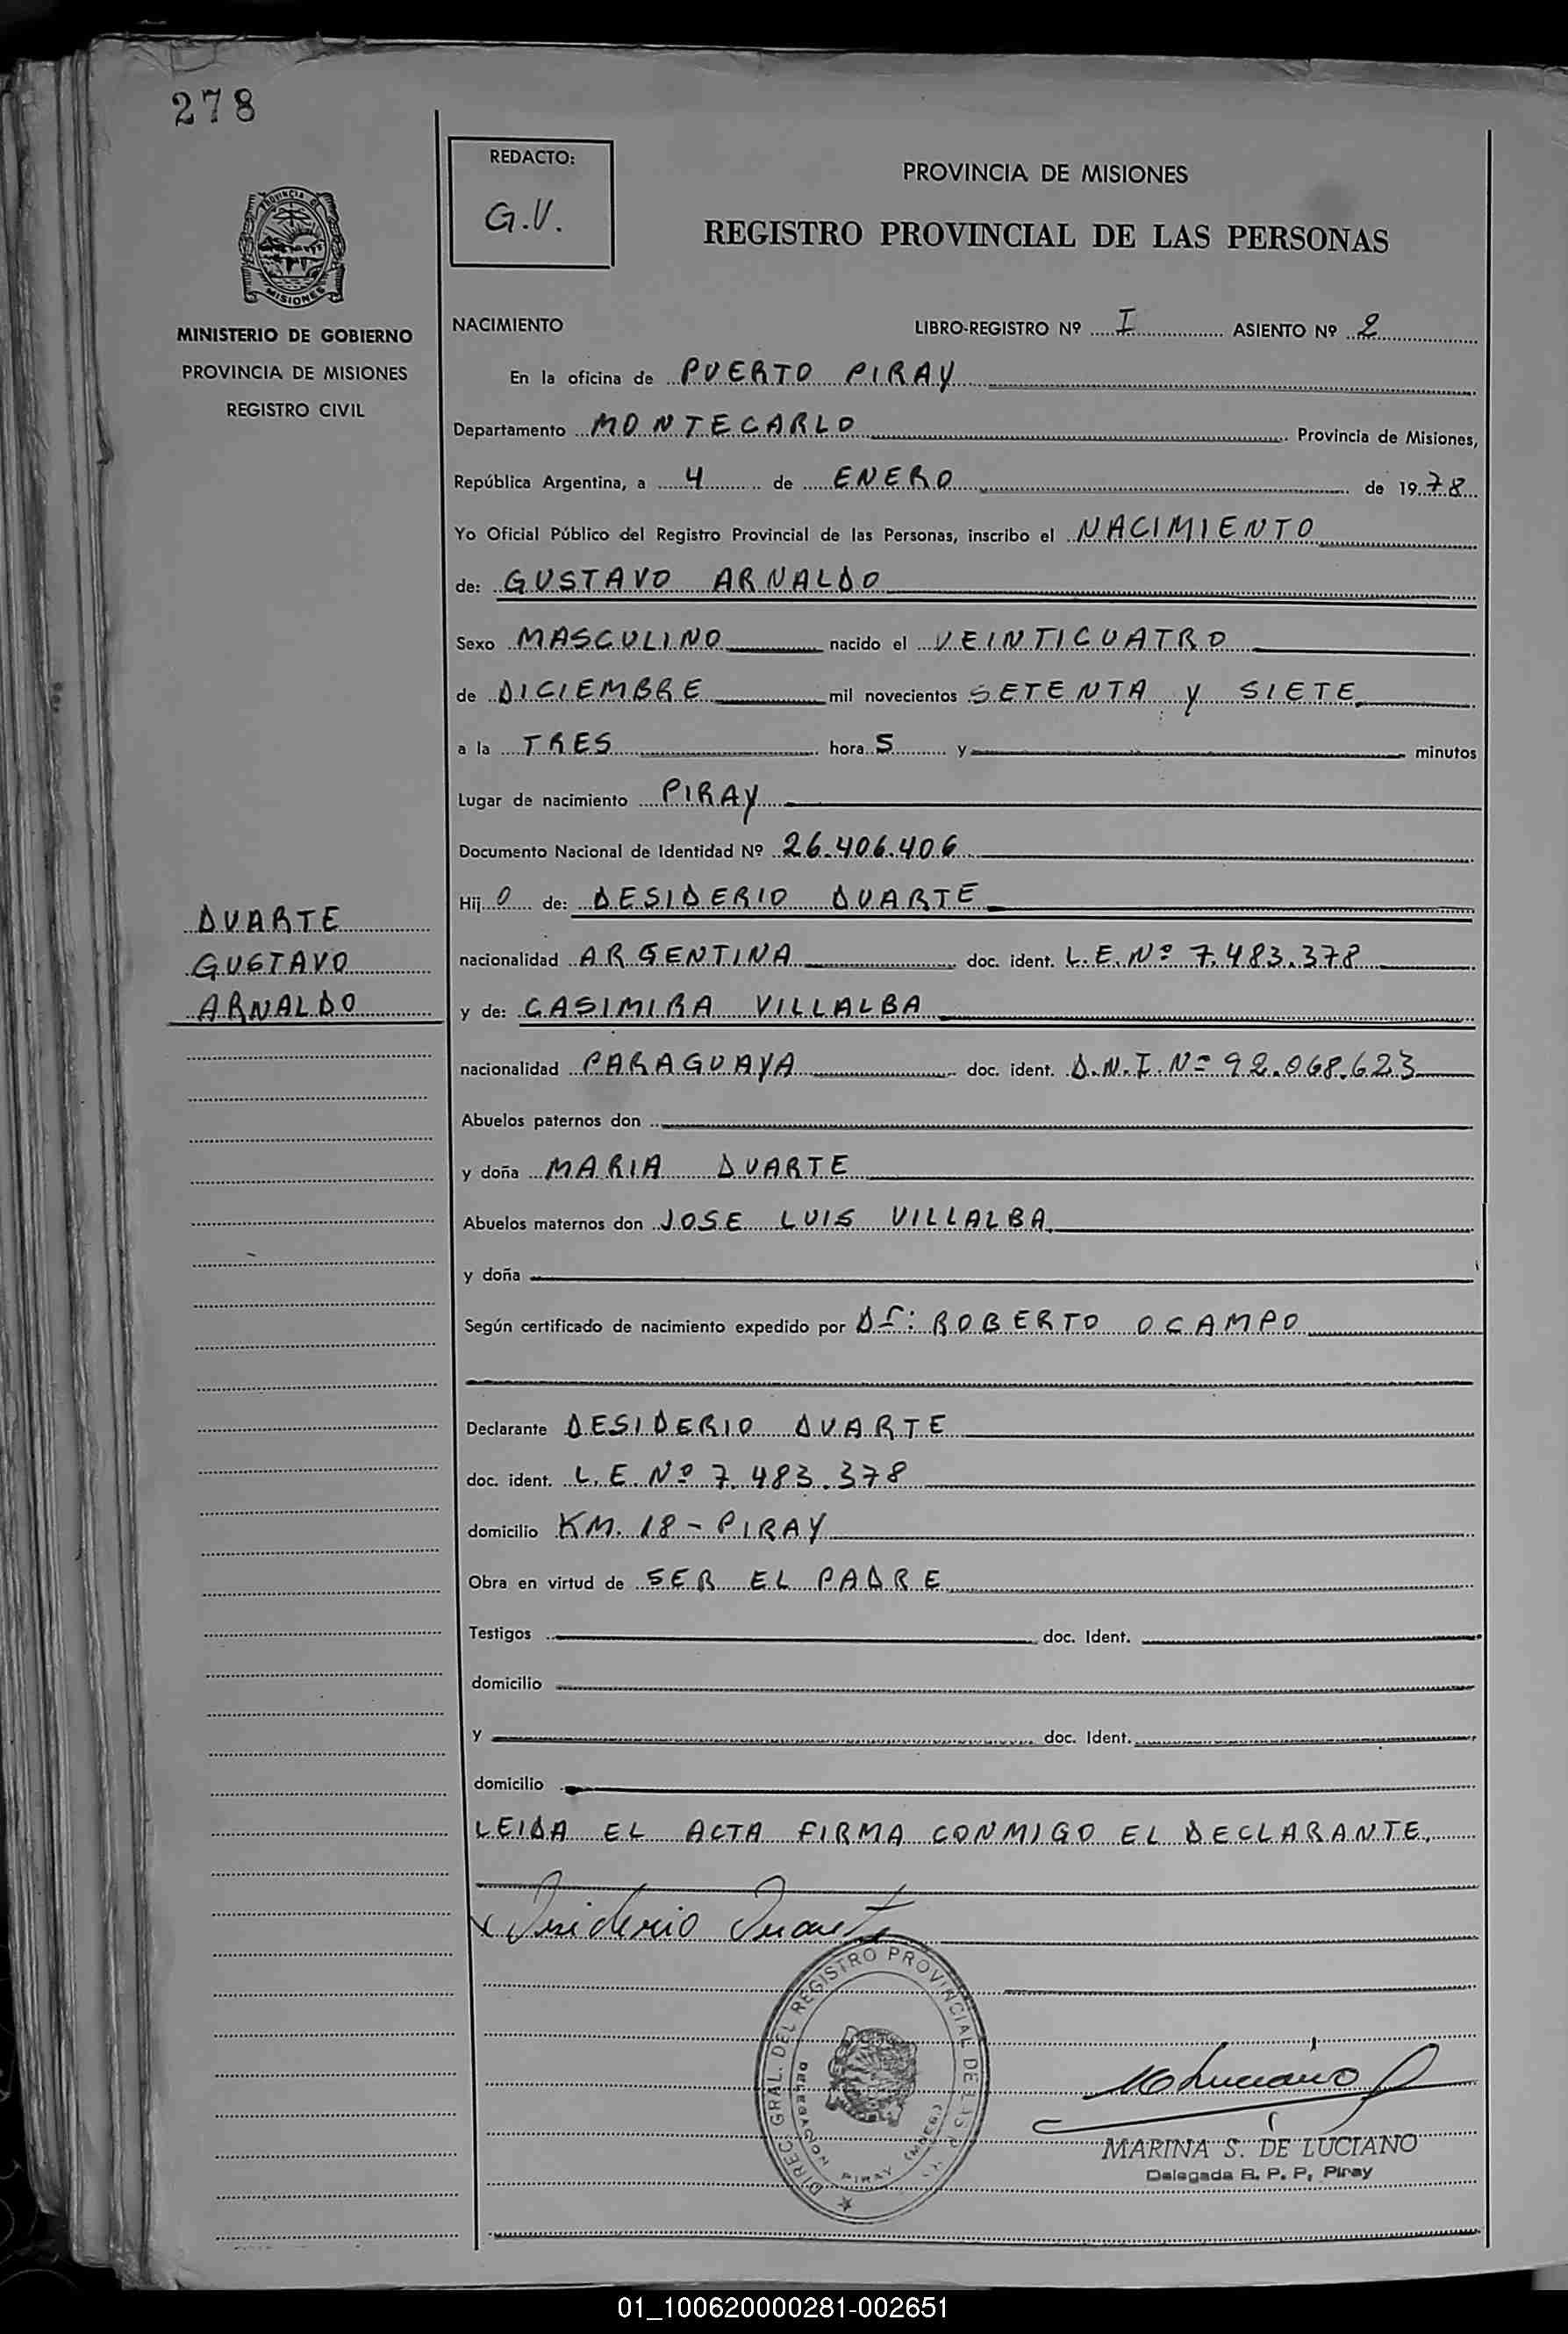 278
PROVINCIA DE
MISIONES
MINISTERIO DE GOBIERNO
PROVINCIA DE MISIONES
REGISTRO CIVIL
DUARTE
GUSTAVO
ARNALDO
REDACTO:
G.V.
PROVINCIA DE MISIONES
REGISTRO PROVINCIAL DE LAS PERSONAS
NACIMIENTO LIBRO-REGISTRO Nº I ASIENTO Nº 2
En la oficina de PUERTO PIRAY
Departamento MONTECARLO Provincia de Misiones,
República Argentina, a 4 de ENERO de 1978
Yo Oficial Público del Registro Provincial de las Personas, inscribo el NACIMIENTO
de: GUSTAVO ARNALDO
Sexo MASCULINO nacido el VEINTICUATRO
de DICIEMBRE mil novecientos SETENTA y SIETE
a la TRES hora S y minutos
Lugar de nacimiento PIRAY
Documento Nacional de Identidad Nº 26.406.406
Hij O de: DESIDERIO DUARTE
nacionalidad ARGENTINA doc. ident. L.E. Nº 7.483.378
y de: CASIMIRA VILLALBA
nacionalidad PARAGUAYA doc. ident. D.N.I. Nº 92.068.623
Abuelos paternos don
y doña MARIA DUARTE
Abuelos maternos don JOSE LUIS VILLALBA
y doña
Según certificado de nacimiento expedido por Dr: ROBERTO OCAMPO
Declarante DESIDERIO DUARTE
doc. ident. L.E. Nº 7.483.378
domicilio KM. 18 - PIRAY
Obra en virtud de SER EL PADRE
Testigos doc. Ident.
domicilio
y doc. Ident.
domicilio
LEIDA EL ACTA FIRMA CONMIGO EL DECLARANTE.
x Desiderio Duarte
DIREC. GRAL. DEL REGISTRO PROVINCIAL DE LAS
DELEGACION PIRAY (MNES.)
M Luciano
MARINA S. DE LUCIANO
Delegada R. P. P. Piray
01_100620000281-002651